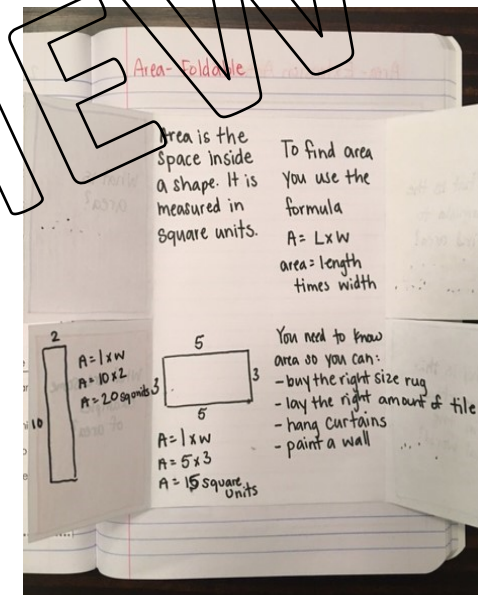 Area- Foldable
Area is the
Space inside
a shape. It is
measured in
Square units.
To find area
you use the
formula
A= L×W
area = length
times width
2
10
A = l x w
A = 10 x 2
A = 20 sq units
5
3
3
5
A = l x w
A = 5 x 3
A = 15 square
units
You need to know
area so you can:
- buy the right size rug
- lay the right amount of tile
- hang curtains
- paint a wall